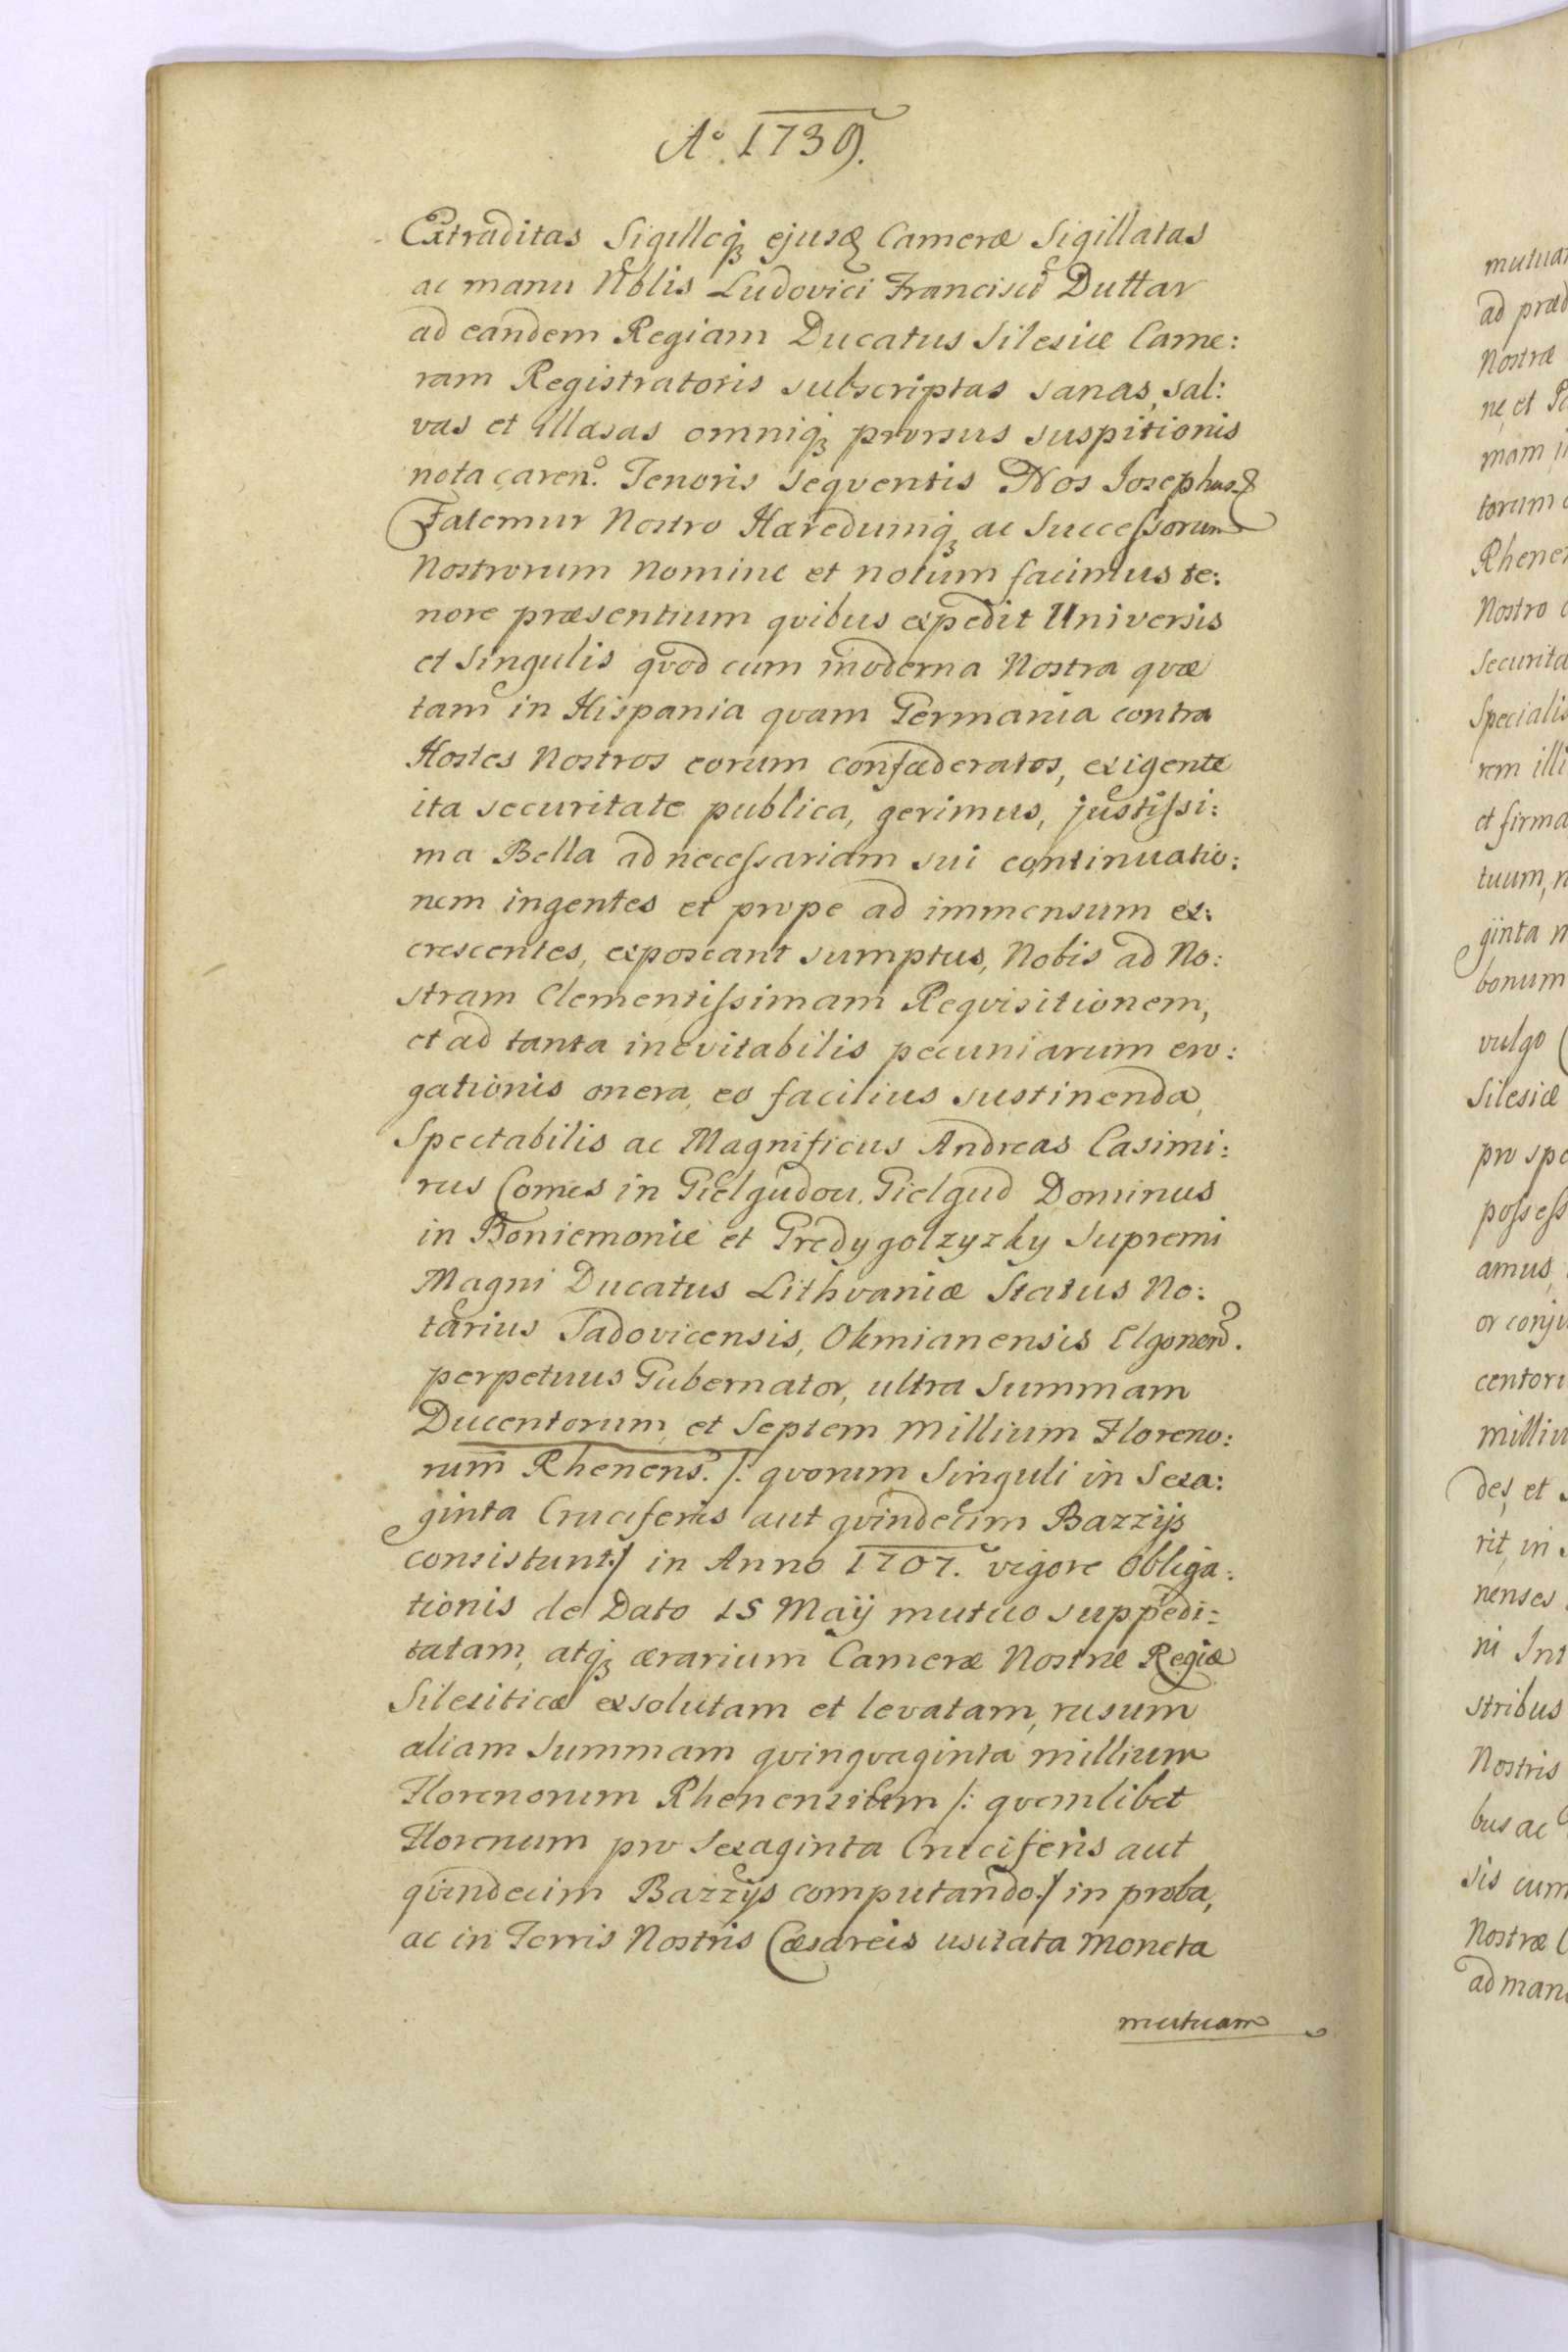 Aº. 1739.
Extraditas Sigilloq₃ ejusd Cameræ Sigillatas
ac manu Nblis Ludovici Francisci Duttar
ad eandem Regiam Ducatus Silesiæ Came:
ram Registratoris subscriptas sanas, sal:
vas et illæsas omniq₃ prorsus suspitionis
nota caren. Tenoris Seqventis Nos Josephus &
Fatemur Nostro Hæredumq₃ ac Successorum
Nostrorum Nomine et notum facimus te:
nore præsentium qvibus expedit Universis
et Singulis qvod cum moderna Nostra qvæ
tam in Hispania qvam Germania contra
Hostes Nostros eorum confæderatos, exigente
ita securitate publica, gerimus, justissi:
ma Bella ad necessariam sui continuatio:
nem ingentes et prope ad immensum ex:
crescentes, exposcant sumptus, Nobis ad No:
stram Clementissimam Reqvisitionem,
et ad tanta inevitabilis pecuniarum ero:
gationis onera, eo facilius sustinenda,
Spectabilis ac Magnificus Andreas Casimi:
rus Comes in Gielgudou. Gielgud Dominus
in Poniemonie et Gredygolzyzky Supremi
Magni Ducatus Lithvaniæ Status No:
tarius Tadovicensis, Okmianensis Elgonens.
perpetuus Gubernator, ultra Summam
Ducentorum, et Septem Millium Floreno:
rum Rhenens. /: qvorum Singuli in Sexa:
ginta Cruciferis aut qvindecim Bazzijs
consistunt:/ in Anno 1707. vigore Obliga:
tionis de Dato 15 Maÿ mutuo suppedi:
tatam, atq₃ ærarium Cameræ Nostræ Regiæ
Silesiticæ exsolutam et levatam, rusum
aliam Summam qvinqvaginta millium
Florenorum Rhenensium /: qvemlibet
Florenum pro Sexaginta Cruciferis aut
qvindecim Bazzijs computando:/ in proba,
ac in Terris Nostris Cæsareis usitata Moneta
mutuam
ad præd
Nostræ
ne, et
torum
Rhenen
Nostro
Securita
Specialis
rem illi
et firma
tuum,
ginta
bonum
vulgo
Silesiæ
pro spe
possess
amus,
or conju
centoru
milliu
des, et
rit, in
nenses
ni Int
stribus
Nostris
bus ac
sis cum
Nostræ
ad man